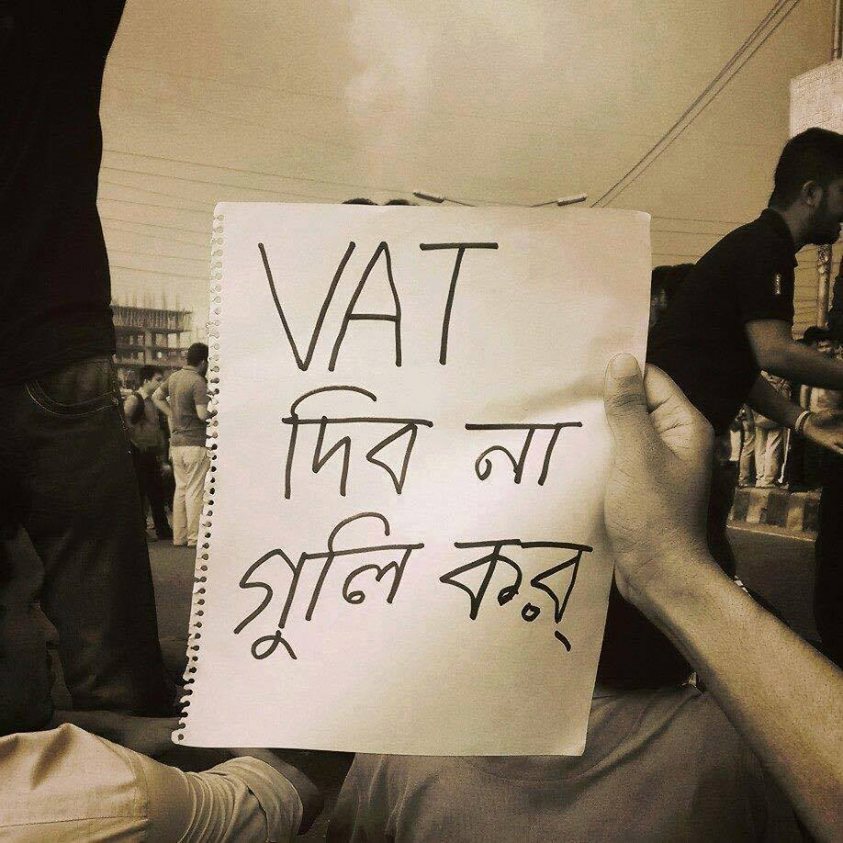 VAT
দিব না
গুলি কর্